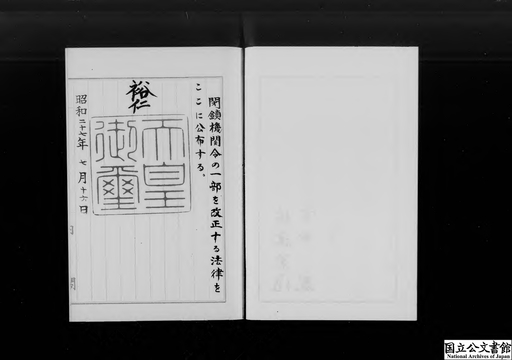 閉鎖機関令の一部を改正する法律を
ここに公布する。
裕仁
天皇
御璽
昭和二十七年 七月十六日
国立公文書館
National Archives of Japan